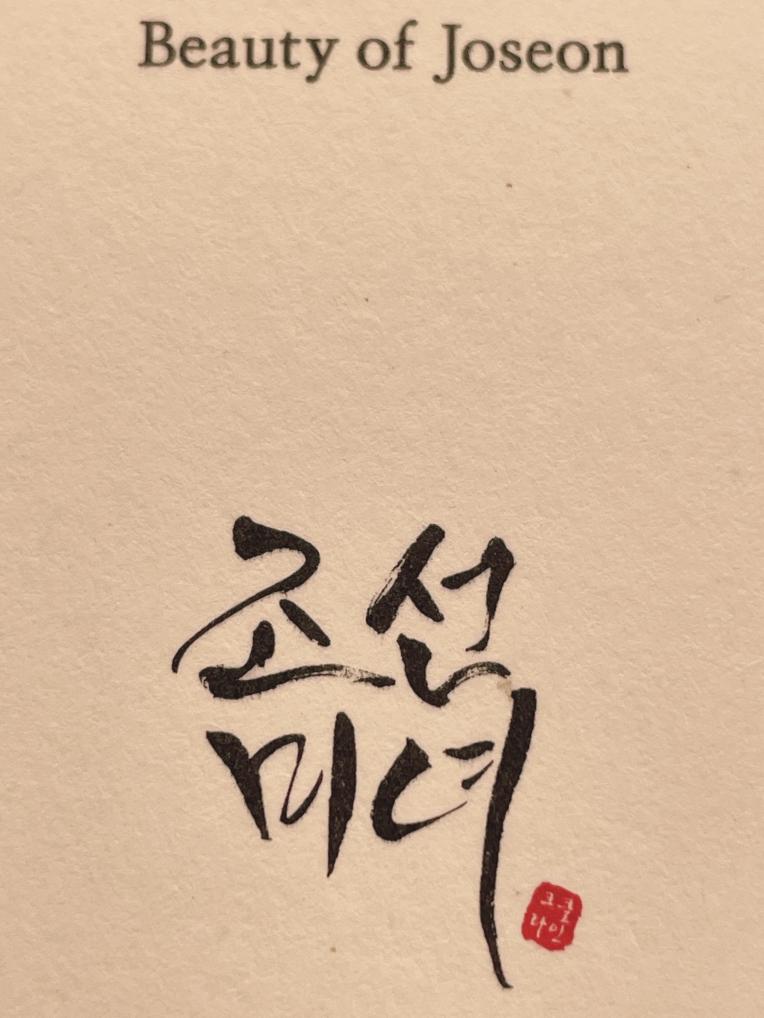 Beauty of Joseon
조선
미녀